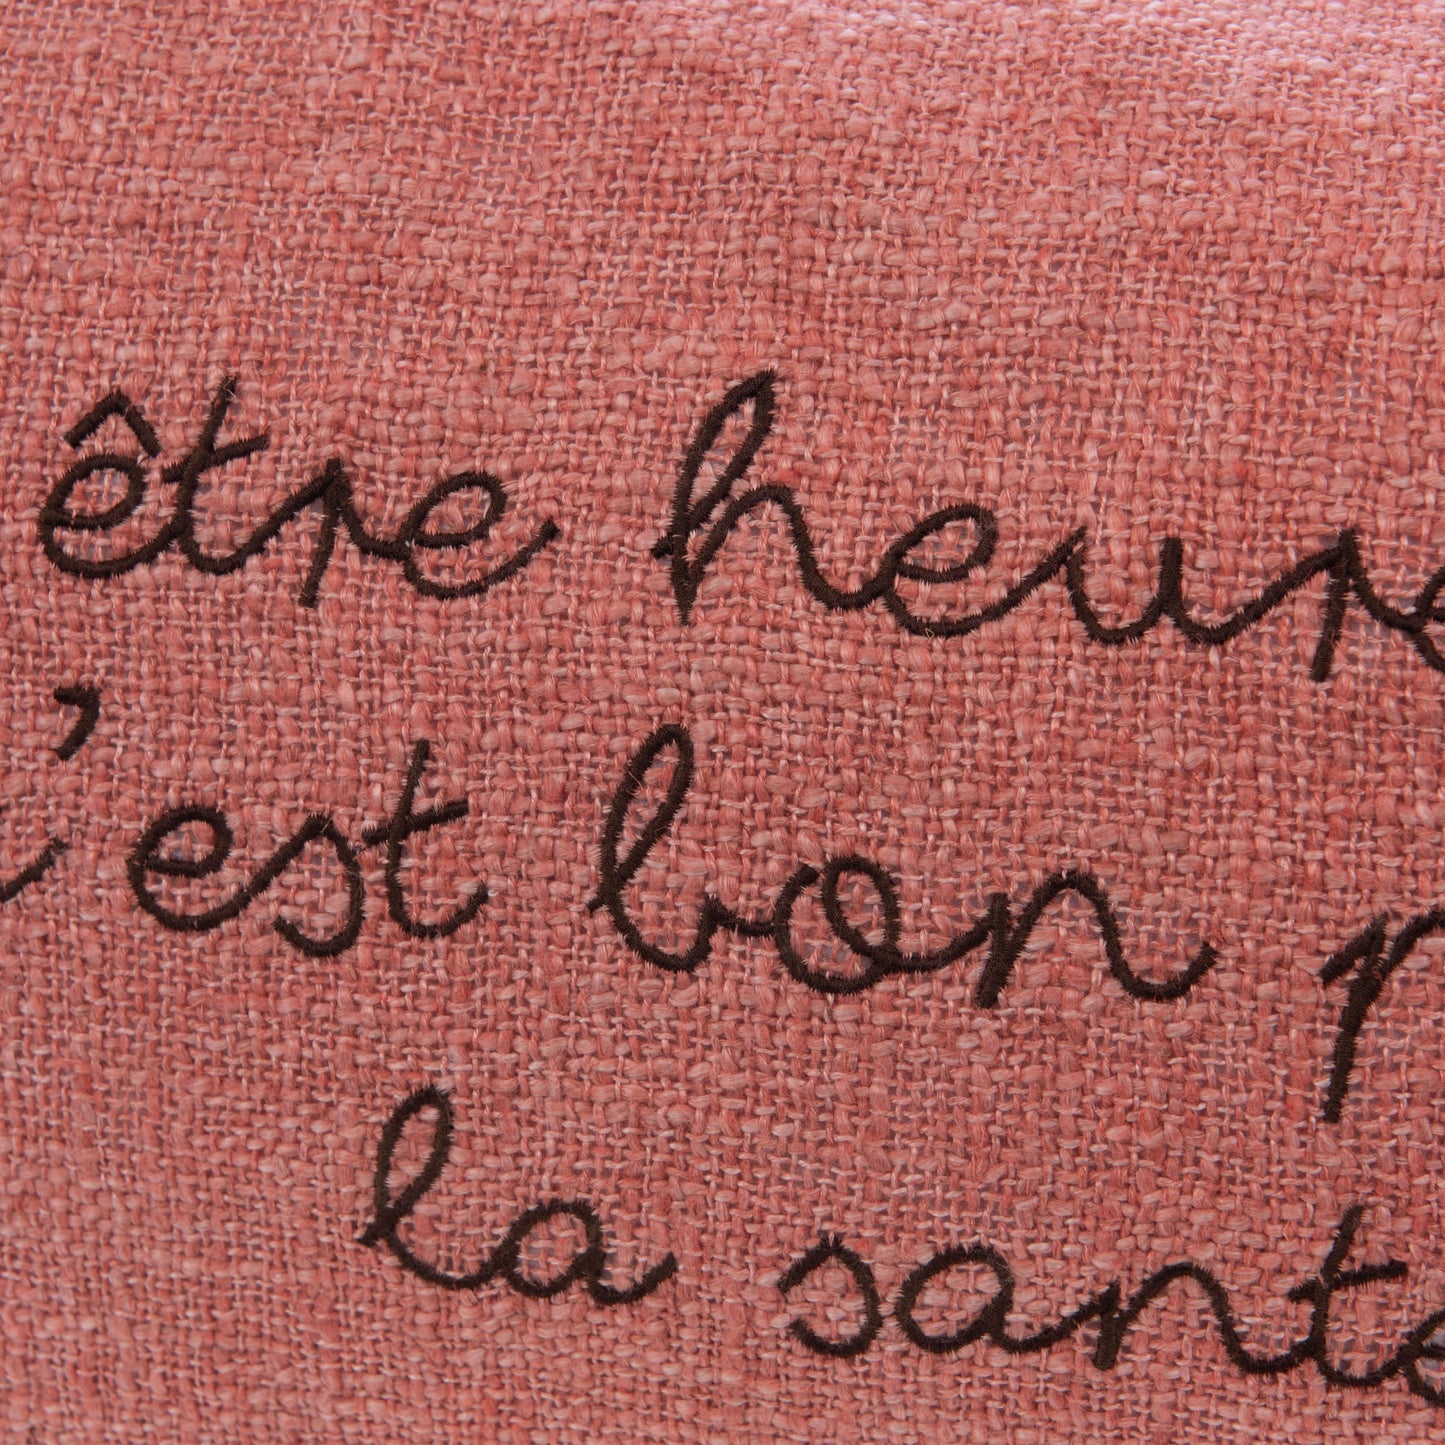 être heure
c'est bon p
la santé